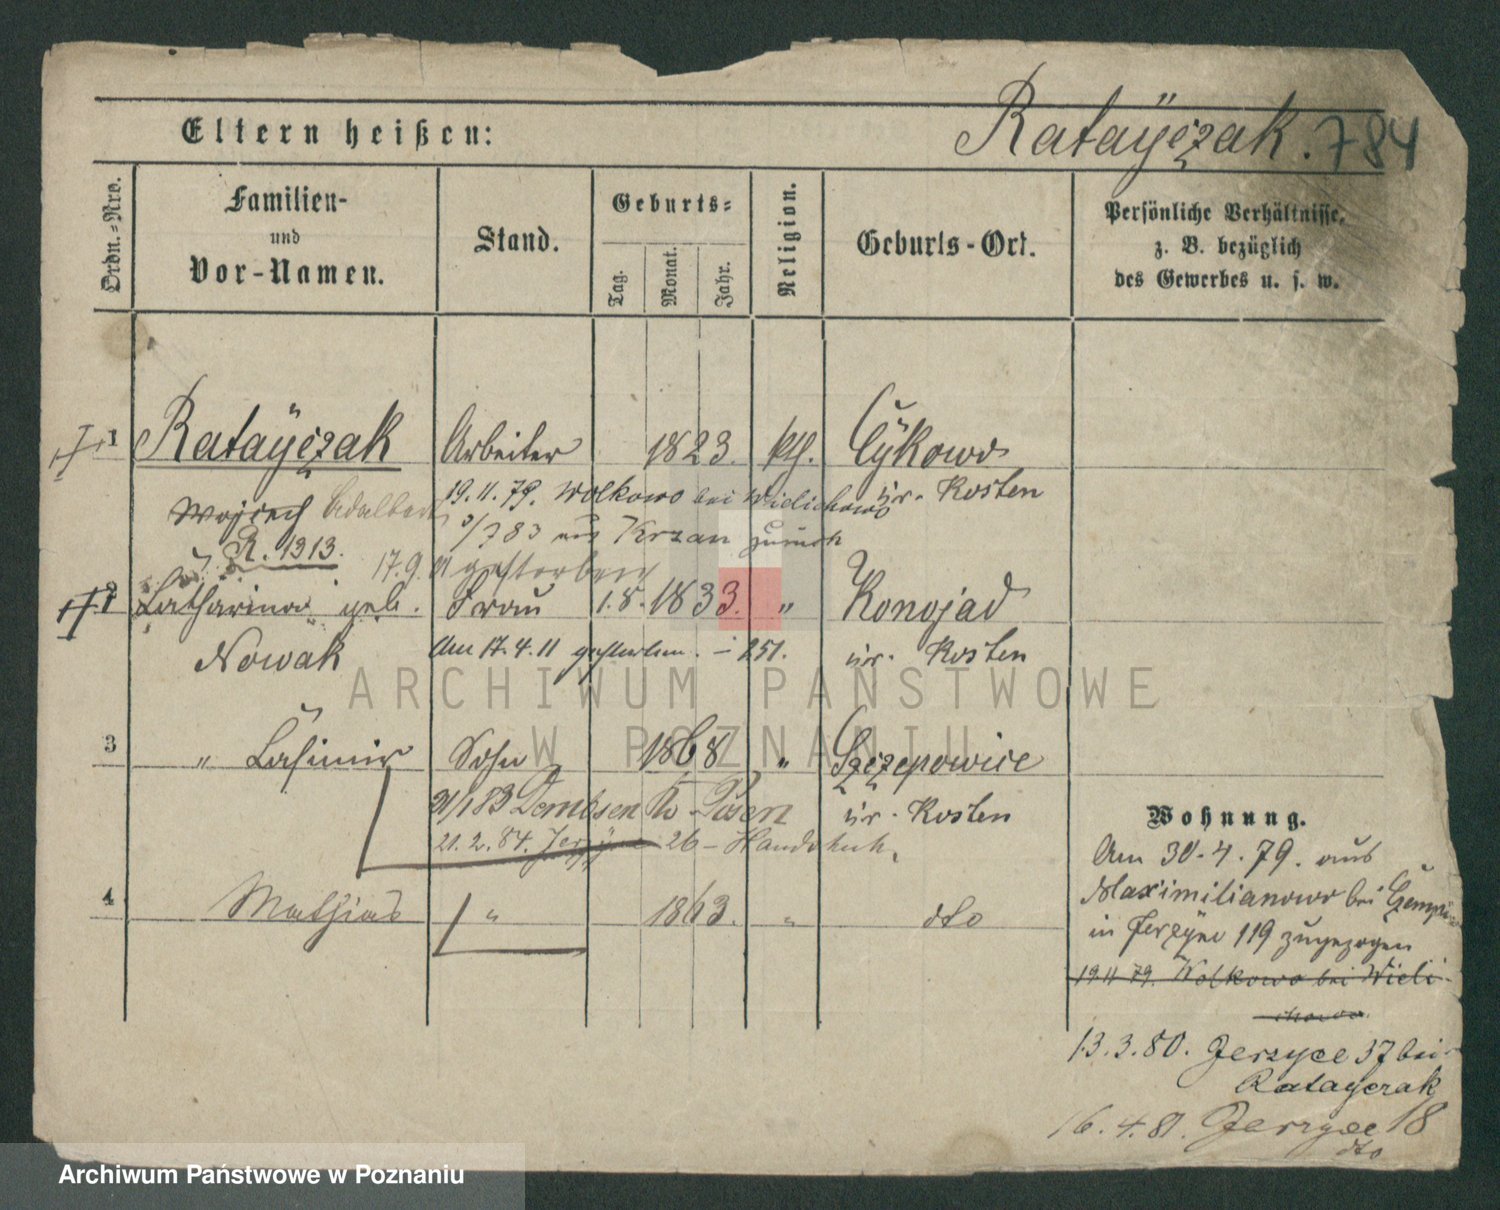 Eltern heißen:
Ratayczak. 784
Ordn.-Nro.
Familien-
und
Vor-Namen.
Stand.
Geburts-
Tag.
Monat.
Jahr.
Religion.
Geburts-Ort.
Persönliche Verhältnisse,
z. B. bezüglich
des Gewerbes u. s. w.
1 Ratayczak Arbeiter 1823. kth. Cykowo
Wojciech Adalbert 19.11.79. Wolkowo bei Wielichowo Kr. Kosten
R. 1313. 3/7 83 aus Krzan zurück
17.9. gestorben
2 Catharina geb. Frau 1.8. 1833. " Konojad
Nowak Am 17.4.11 gestorben. - 251. Kr. Kosten
ARCHIWUM PAŃSTWOWE
W POZNANIU
3 " Casimir Sohn 1868 " Szczepowice
31/1 83 Dembsen Kr. Posen Kr. Kosten
21.2.84. Jerzyce 26 -
4 Mathias " 1863. " dto
Wohnung.
Am 30.4.79. aus
Maximilianowo bei
in Jerzyce 119 zugezogen
19.11.79. Wolkowo bei Wieli-
chowo.
13.3.80. Jerzyce 37 bei
Ratayczak
16.4.81. Jerzyce 18
dto
Archiwum Państwowe w Poznaniu